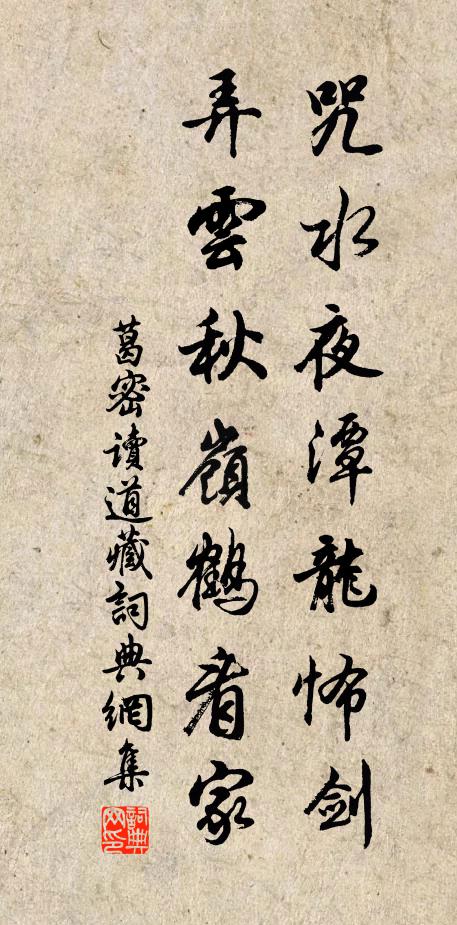 咒水夜潭龍怖劍
弄雲秋嶺鶴看家
葛密讀道藏詞典網集
詞典網印